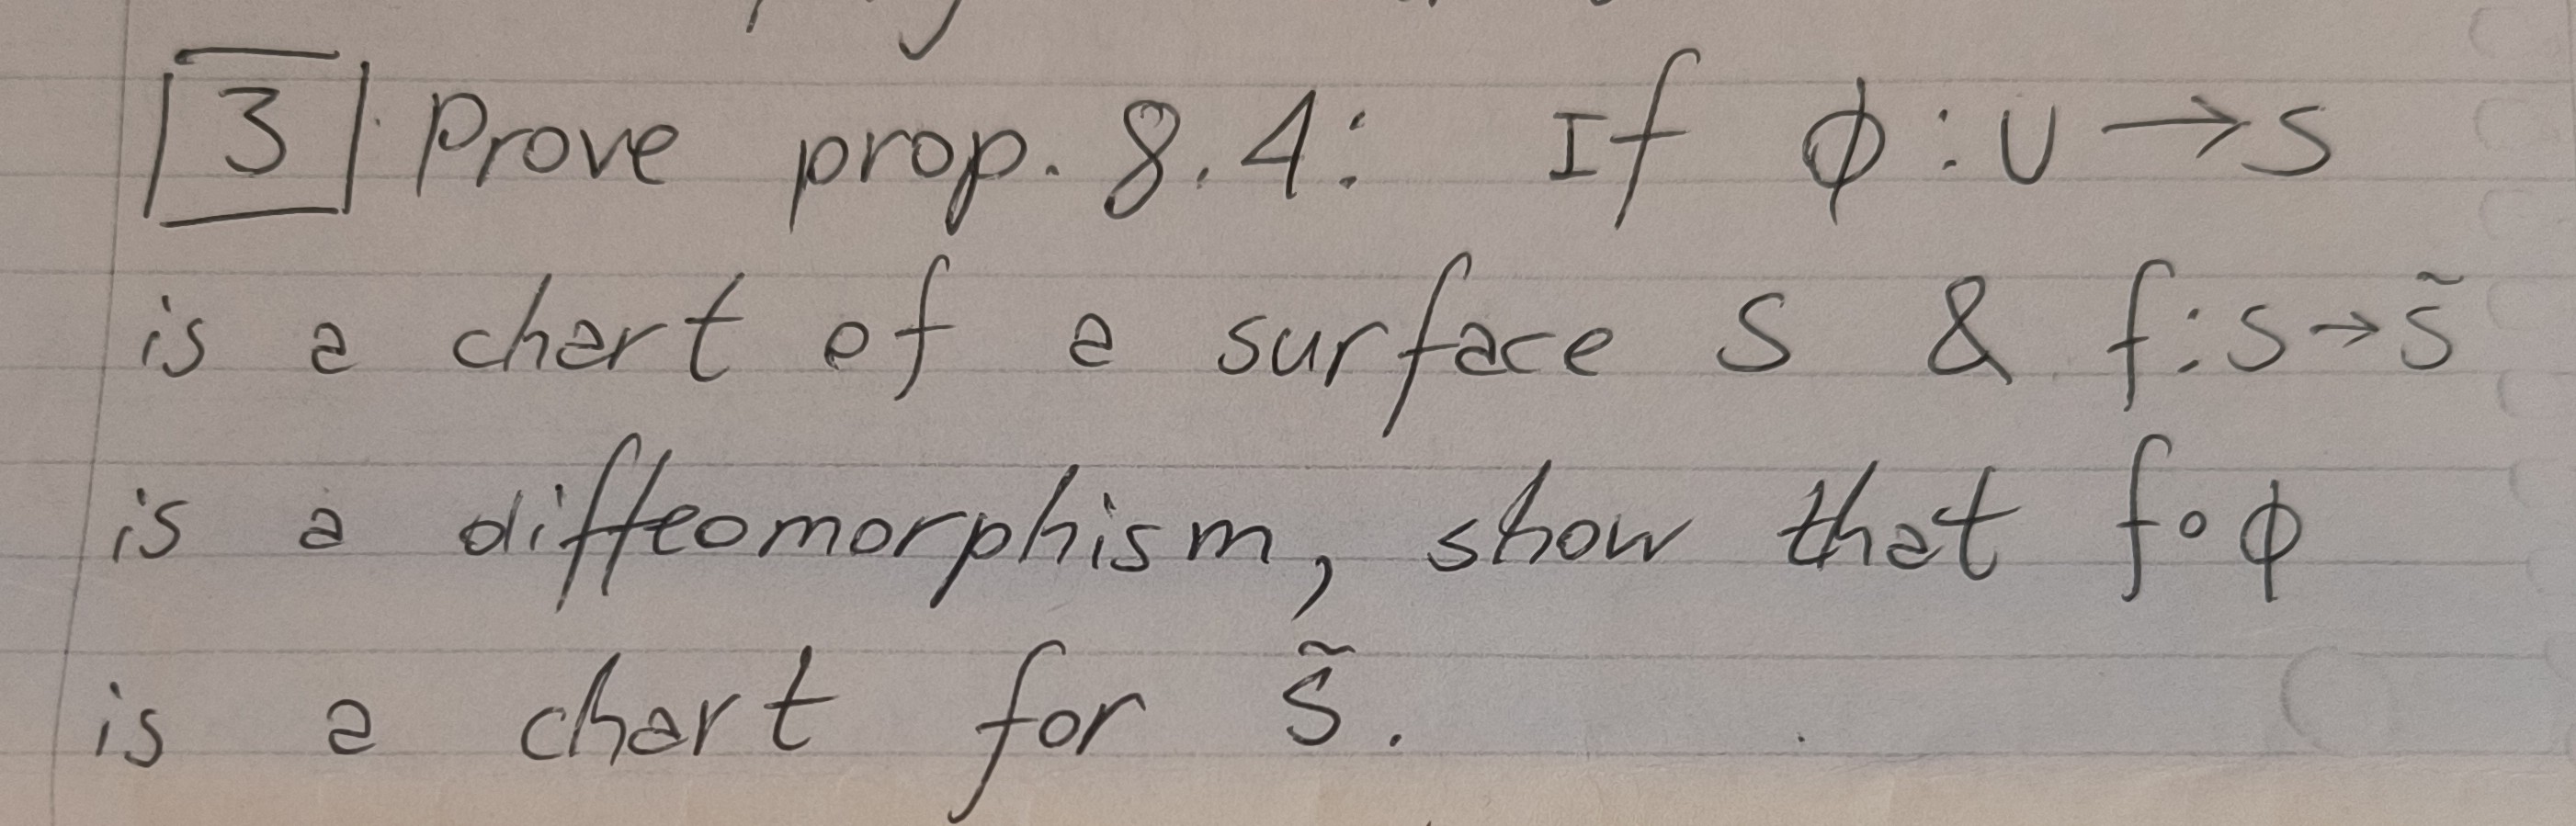 3 Prove prop. 8.4: If ϕ : U → S
is a chart of a surface S & f : S → S̃
is a diffeomorphism, show that f ∘ ϕ
is a chart for S̃.